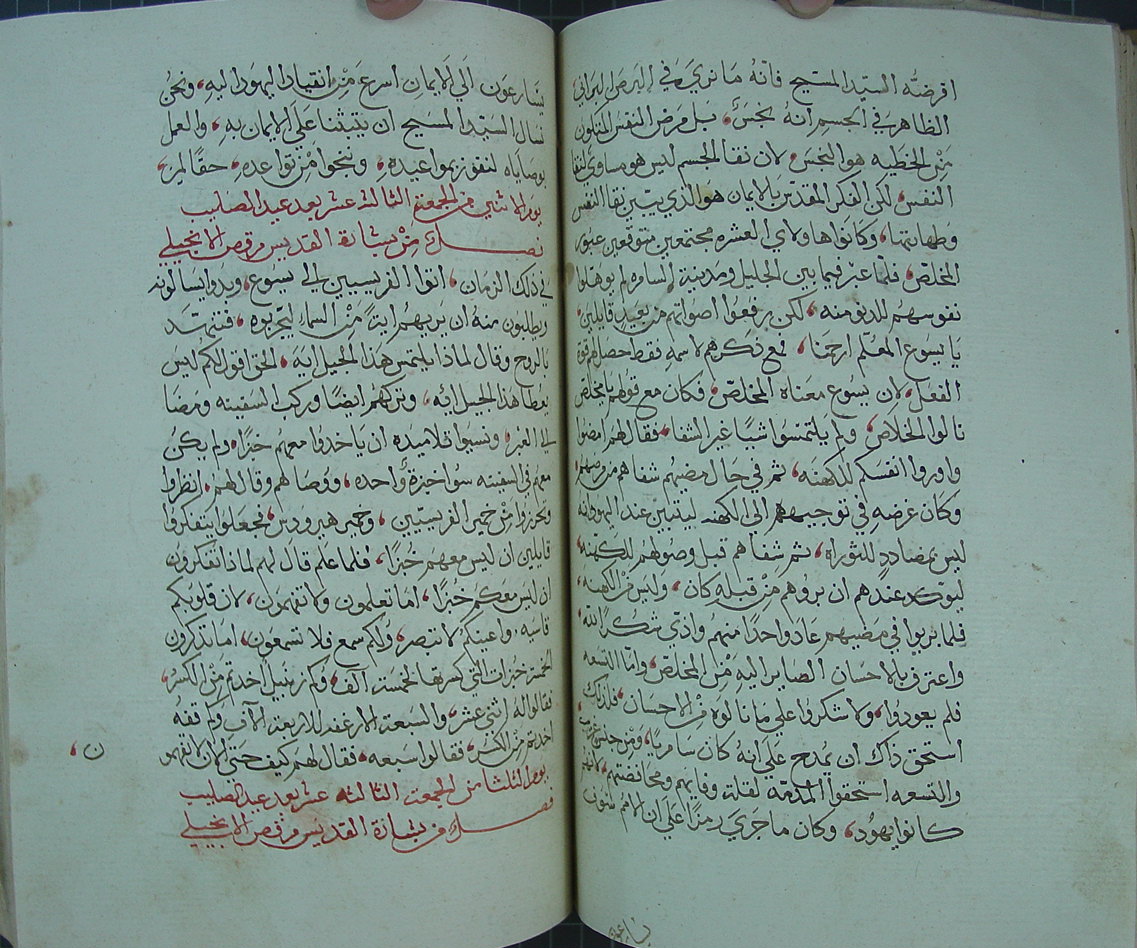 افرضه السيد المسيح فانه ما نري في البرص البراني
الظاهر في الجسم انه نجس، بل مرض النفس المتلون
من الخطيه هو النجس، لان نقا الجسم ليس هو مساوي لنقا
النفس، لكن الفكر المقدس بالايمان هو الذي يبين نقا النفس
وطهارتها، وكانوا هاولاي العشره مجتمعين متوقعين عبور
المخلص، فلما عبر فيما بين الجليل ومدينة السامره لم يوهلوا
نفوسهم للدنو منه، لكن رفعوا اصواتهم من بعيد قايلين،
يا يسوع المعلم ارحمنا، فمع ذكرهم لاسمه فقط حصل لهم قوة
الفعل، لان يسوع معناه المخلص، فكان مع قولهم يا مخلص
نالوا الخلاص، ولم يلتمسوا شيا غير الشفا، فقال لهم امضوا
واوروا انفسكم للكهنه، ثم في حال مضيهم شفاهم من برصهم،
وكان غرضه في توجيههم الي الكهنه ليتبين عند اليهود انه
ليس بمضادد للتوراه، ثم شفاهم قبل وصولهم للكهنه،
ليوكد عندهم ان بروهم من قبله كان، وليس من الكهنه،
فلما بريوا في مضيهم عاد واحدا منهم وادي شكرا لله،
واعترف بالاحسان الصاير اليه من المخلص، واما التسعه
فلم يعودوا، ولا شكروا علي ما نالوه من الاحسان، فلذلك
استحق ذاك ان يمدح علي انه كان سامريا، ومن جنس غريب،
والتسعه استحقوا المذمه لقلة وفايهم ومحافضتهم، لانهم
كانوا يهود، وكان ما جري رمزا علي ان الامم سوف
يسارعون الي الايمان اسرع من انقياد اليهود اليه، ونحن
نسال السيد المسيح ان يثبتنا علي الايمان به، والعمل
بوصاياه لنفوز بمواعيده، وننجوا من تواعده، حقا امين،
يوم الاثنين من الجمعة الثالثة عشر بعد عيد الصليب
فصل من بشارة القديس مرقص الانجيلي
في ذلك الزمان، اتوا الفريسيين الي يسوع، وبدوا يسالونه
ويطلبون منه ان يريهم ايتا من السماء ليجربوه، فتنهد
بالروح وقال لماذا يلتمس هذا الجيل ايه، الحق اقول لكم ليس
يعطا هذا الجيل ايه، وتركهم ايضا وركب السفينه ومضا
الي العبر، ونسيوا تلاميذه ان ياخدوا معهم خبزا، ولم يكن
معهم في السفينه سوا خبزة واحده، ووصاهم وقال لهم، انظروا
وتحرزوا من خمير الفريسيين، وخمير هيرودس، فجعلوا يتفكروا
قايلين ان ليس معهم خبزا، فلما علم قال لهم لماذا تفكرون
ان ليس معكم خبزا، اما تعلمون ولا تفهمون، لان قلوبكم
قاسيه، واعينكم لا تنصر، ولكم سمع فلا تسمعون، اما تذكرون
الخمسة خبزات التي كسرتها لخمسة الف، وكم زنبيل اخدتم من الكسر،
فقالوا له اثني عشر، والسبعة الارغفه للاربعة الاف وكم قفه
اخدتم من الكسر، فقالوا سبعه، فقال لهم كيف حتي الان لا تفهمو
ن،
يوم الثلثا من الجمعة الثالثه عشر بعد عيد الصليب
فصل من بشارة القديس مرقص الانجيلي